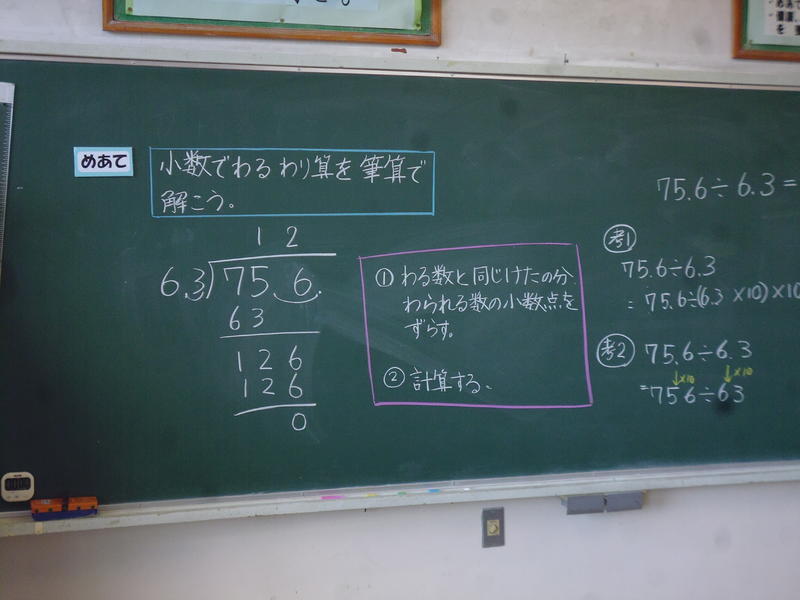 めあて
小数でわるわり算を筆算で
解こう。
12
6.3)75 6.
63
126
126
0
① わる数と同じけたの分、
わられる数の小数点を
ずらす。
② 計算する。
75.6÷6.3=
考1
75.6÷6.3
=75.6÷(6.3×10)×10
考2 75.6÷6.3
↓×10 ↓×10
=756÷63